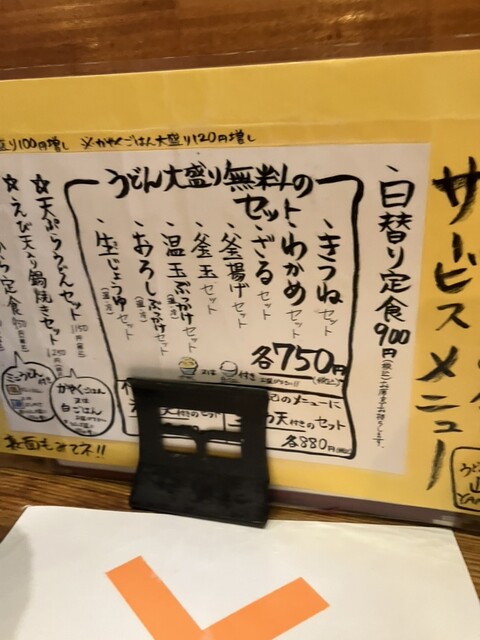 サービスメニュー
日替り定食 900円(税込)
うどん大盛り無料の
セット
・きつねセット
・わかめセット
・ざるセット
・釜揚げセット
・釜玉セット
・温玉ぶっかけセット
・おろしぶっかけセット
・生じょうゆセット
各750円(税込)
又は 付き
のメニューに
天付きのセット
天付きのセット
各880円(税込)
100円増し ※かやくごはん大盛り120円増し
☆天ぷらうどんセット 1150円(税込)
☆えび天入り鍋焼きセット 1250円(税込)
定食
かやくごはん
又は
白ごはん
裏面もみてネ!!